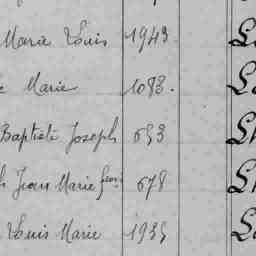 Marie Louis 1943
Marie 1083.
Baptiste Joseph 653
Jean Marie 678
Louis Marie 1935